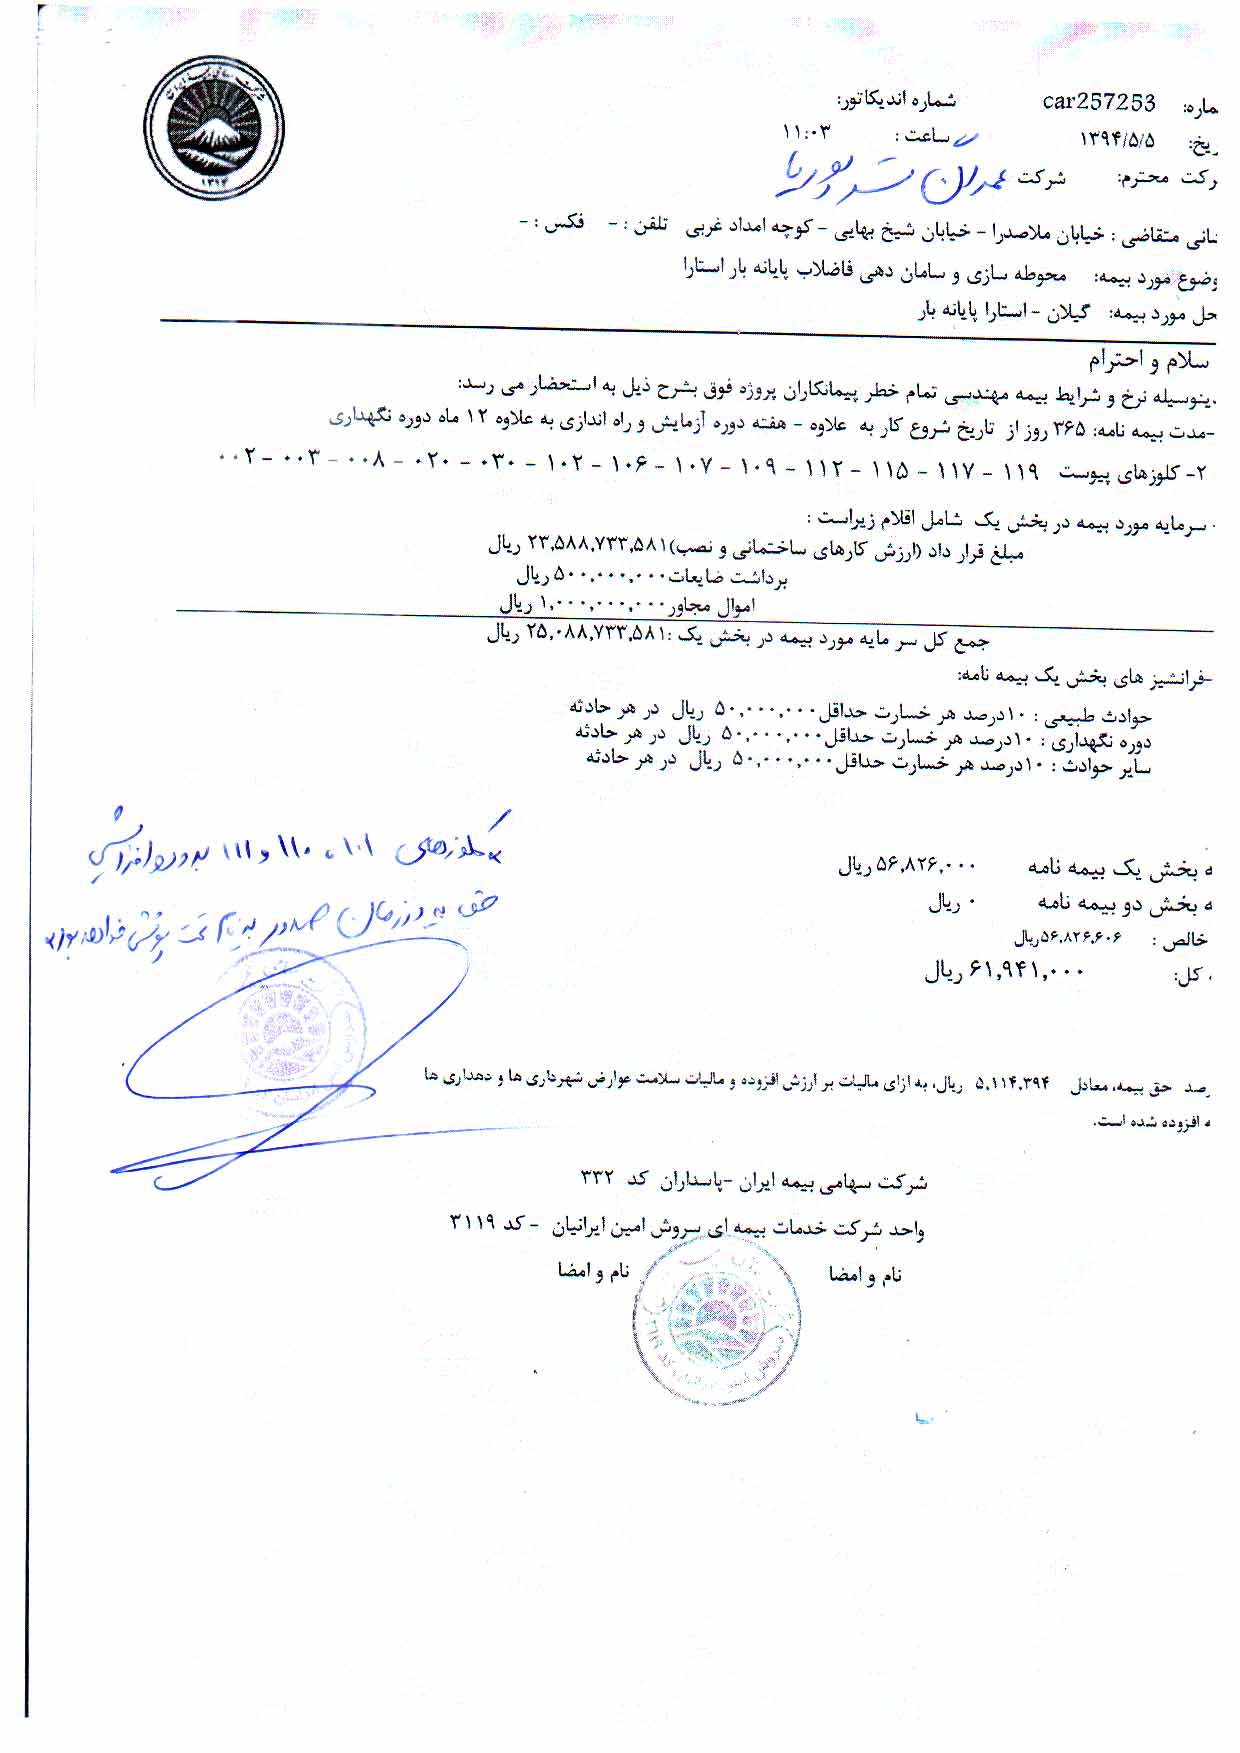 ماره: car257253 شماره اندیکاتور:
ریخ: ۱۳۹۴/۵/۵ ساعت : ۱۱:۰۳
رکت محترم: شرکت عمران
شانی متقاضی : خیابان ملاصدرا - خیابان شیخ بهایی - کوچه امداد غربی تلفن : - فکس : -
وضوع مورد بیمه: محوطه سازی و سامان دهی فاضلاب پایانه بار استارا
حل مورد بیمه: گیلان - استارا پایانه بار
سلام و احترام
ینوسیله نرخ و شرایط بیمه مهندسی تمام خطر پیمانکاران پروژه فوق بشرح ذیل به استحضار می رسد:
-مدت بیمه نامه: ۳۶۵ روز از تاریخ شروع کار به علاوه - هفته دوره آزمایش و راه اندازی به علاوه ۱۲ ماه دوره نگهداری
۲- کلوزهای پیوست ۱۱۹ - ۱۱۷ - ۱۱۵ - ۱۱۲ - ۱۰۹ - ۱۰۷ - ۱۰۶ - ۱۰۲ - ۰۳۰ - ۰۲۰ - ۰۰۸ - ۰۰۳ - ۰۰۲
سرمایه مورد بیمه در بخش یک شامل اقلام زیراست :
مبلغ قرار داد (ارزش کارهای ساختمانی و نصب)۲۳,۵۸۸,۷۳۳,۵۸۱ ریال
برداشت ضایعات۵۰۰,۰۰۰,۰۰۰ ریال
اموال مجاور۱,۰۰۰,۰۰۰,۰۰۰ ریال
جمع کل سر مایه مورد بیمه در بخش یک :۲۵,۰۸۸,۷۳۳,۵۸۱ ریال
-فرانشیز های بخش یک بیمه نامه:
حوادث طبیعی : ۱۰درصد هر خسارت حداقل۵۰,۰۰۰,۰۰۰ ریال در هر حادثه
دوره نگهداری : ۱۰درصد هر خسارت حداقل۵۰,۰۰۰,۰۰۰ ریال در هر حادثه
سایر حوادث : ۱۰درصد هر خسارت حداقل۵۰,۰۰۰,۰۰۰ ریال در هر حادثه
کلوزهای ۱۰۱ ، ۱۱۰ و ۱۱۱ بدون افزایش
حق بیمه در زمان صدور بیمه نامه تحت پوشش خواهد بود
ه بخش یک بیمه نامه ۵۶,۸۲۶,۰۰۰ ریال
ه بخش دو بیمه نامه ۰ ریال
خالص : ۵۶,۸۲۶,۶۰۶ریال
کل: ۶۱,۹۴۱,۰۰۰ ریال
رصد حق بیمه، معادل ۵,۱۱۴,۳۹۴ ریال، به ازای مالیات بر ارزش افزوده و مالیات سلامت عوارض شهرداری ها و دهداری ها
ه افزوده شده است.
شرکت سهامی بیمه ایران -پاسداران کد ۳۳۲
واحد شرکت خدمات بیمه ای سروش امین ایرانیان - کد ۳۱۱۹
نام و امضا نام و امضا